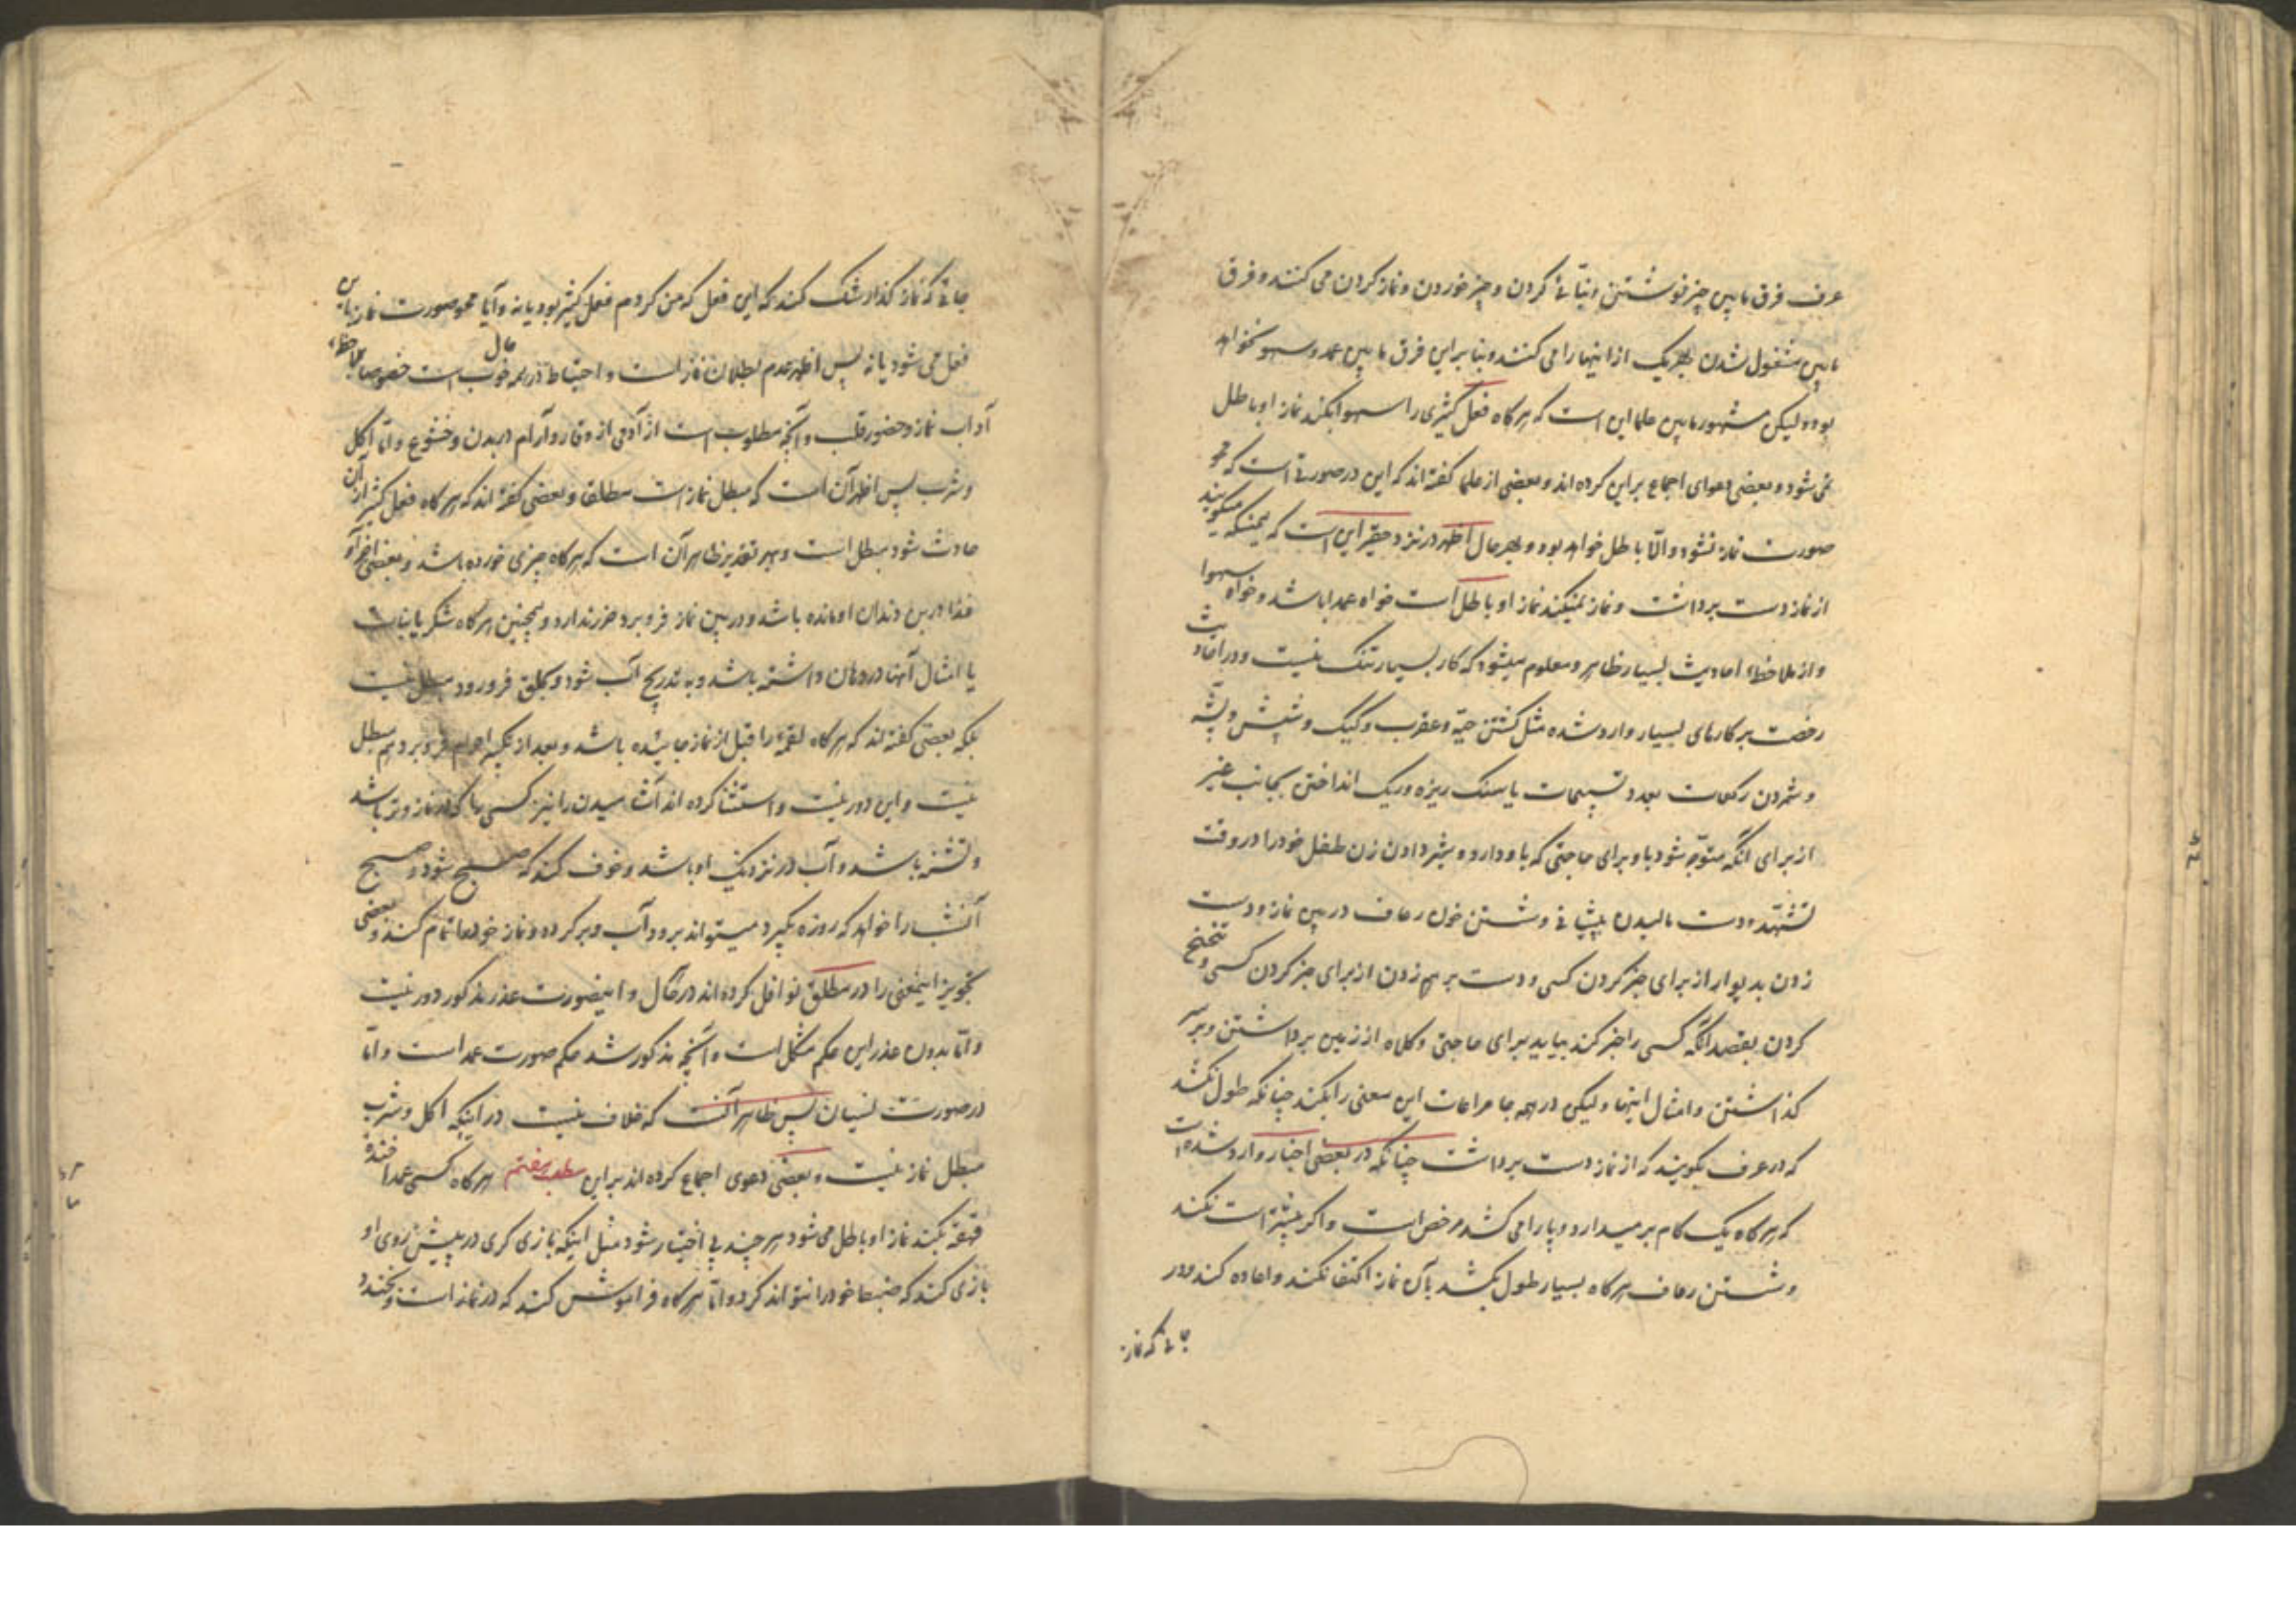 عرف فرق مابین چیز فروشتن و بنّائی کردن و چیز خوردن و نماز کردن می کنند و فرق
مابین مشغول شدن بهر یک از اینها را می کنند و بنا براین فرق مابین عمد و سهو نخواهد
بود ولیکن مشهور مابین علما این است که هر کاه فعل کثیری را سهوا بکند نماز او باطل
نمی شود و بعضی دعوای اجماع براین کرده اند و بعضی از علما کفته اند که این در صورتی است که محو
صورت نماز نشود و الّا باطل خواهد بود و بهر حال اظهر در نزد حقیر این است که همینکه میکویند
از نماز دست برداشت و نماز نمیکند نماز او باطل است خواه عمدا باشد و خواه سهوا
و از ملاحظهٔ احادیث بسیار ظاهر و معلوم میشود که کار بسیار تنک نیست و در احادیث
رخصت بر کارهای بسیار وارد شده مثل کشتن حیّه و عقرب و کیک و شپش و پشه
و شمردن رکعات بعدد تسبیحات یا سنک ریزه و ریک انداختن بجانب غیر
از برای آنکه متوجّه شود باو برای حاجتی که باو دارد و شیر دادن زن طفل خود را در وقت
تشهّد و دست مالیدن پیشانی و شستن خون رعاف در بین نماز و دست
زدن بدیوار از برای خبر کردن کسی و دست بر هم زدن از برای خبر کردن کسی و تنحنح
کردن بقصد آنکه کسی را خبر کند بیاید برای حاجتی و کلاه از زمین برداشتن و بر سر
کذاشتن و امثال اینها ولیکن در همه جا مراعات این معنی را بکند چنانکه طول نکشد
که در عرف بکویند که از نماز دست برداشت چنانکه در بعضی اخبار وارد شده است
که هر کاه یک کام بر میدارد و پا را می کشد مرخص است و اکر بیشتر است نکند
و شستن رعاف هر کاه بسیار طول بکشد بآن نماز اکتفا نکند و اعاده کند و در
جائی که نماز
جائی که نماز کذار شک کند که این فعل که من کردم فعل کثیر بود یا نه و آیا محو صورت نماز باین
فعل می شود یا نه پس اظهر عدم بطلان نماز است و احتیاط در همه حال خوب است خصوصا بملاحظهٔ
آداب نماز و حضور قلب و آنچه مطلوب است از آدمی از وقار و آرام در بدن و خشوع و امّا اکل
و شرب پس اظهر آن است که مبطل نماز است مطلقا و بعضی کفته اند که هر کاه فعل کثیر از آن
حادث شود مبطل است و بهر تقدیر ظاهر آن است که هر کاه چیزی خورده باشد و بعضی اجزاء
غذا در بن دندان او مانده باشد و در بین نماز فرو برد ضرر ندارد و همچنین هر کاه شکر یا نبات
یا امثال آنها در دهان داشته باشد و به تدریج آب شود و بحلق فرو رود مبطل نیست
بلکه بعضی کفته اند که هر کاه لقمهٔ را قبل از نماز جائیده باشد و بعد از تکبیر احرام فرو برد هم مبطل
نیست و این دور نیست و استثنا کرده اند آشامیدن را نیز کسی را که در نماز وتر باشد
و تشنه باشد و آب در نزدیک او باشد و خوف کند که صبح شود و صبح
آنشب را خواهد که روزه بکیرد میتواند برود آب و بر کرده و نماز خود را تمام کند و بعضی
تجویز اینمعنی را در مطلق نوافل کرده اند در حال و اینصورت عذر مذکور دور نیست
و امّا بدون عذر این حکم مشکل است و آنچه مذکور شد حکم صورت عمد است و امّا
در صورت نسیان پس ظاهر آنست که خلاف نیست در اینکه اکل و شرب
مبطل نماز نیست و بعضی دعوی اجماع کرده اند براین مطلب هفتم هر کاه کسی عمدا خندهٔ
قهقهه بکند نماز او باطل می شود هر چند بی اختیار شود مثل اینکه بازی کری در پیش روی او
بازی کند که ضبط خود را نتواند کرد و امّا هر کاه فراموش کند که در نماز است و بخندد